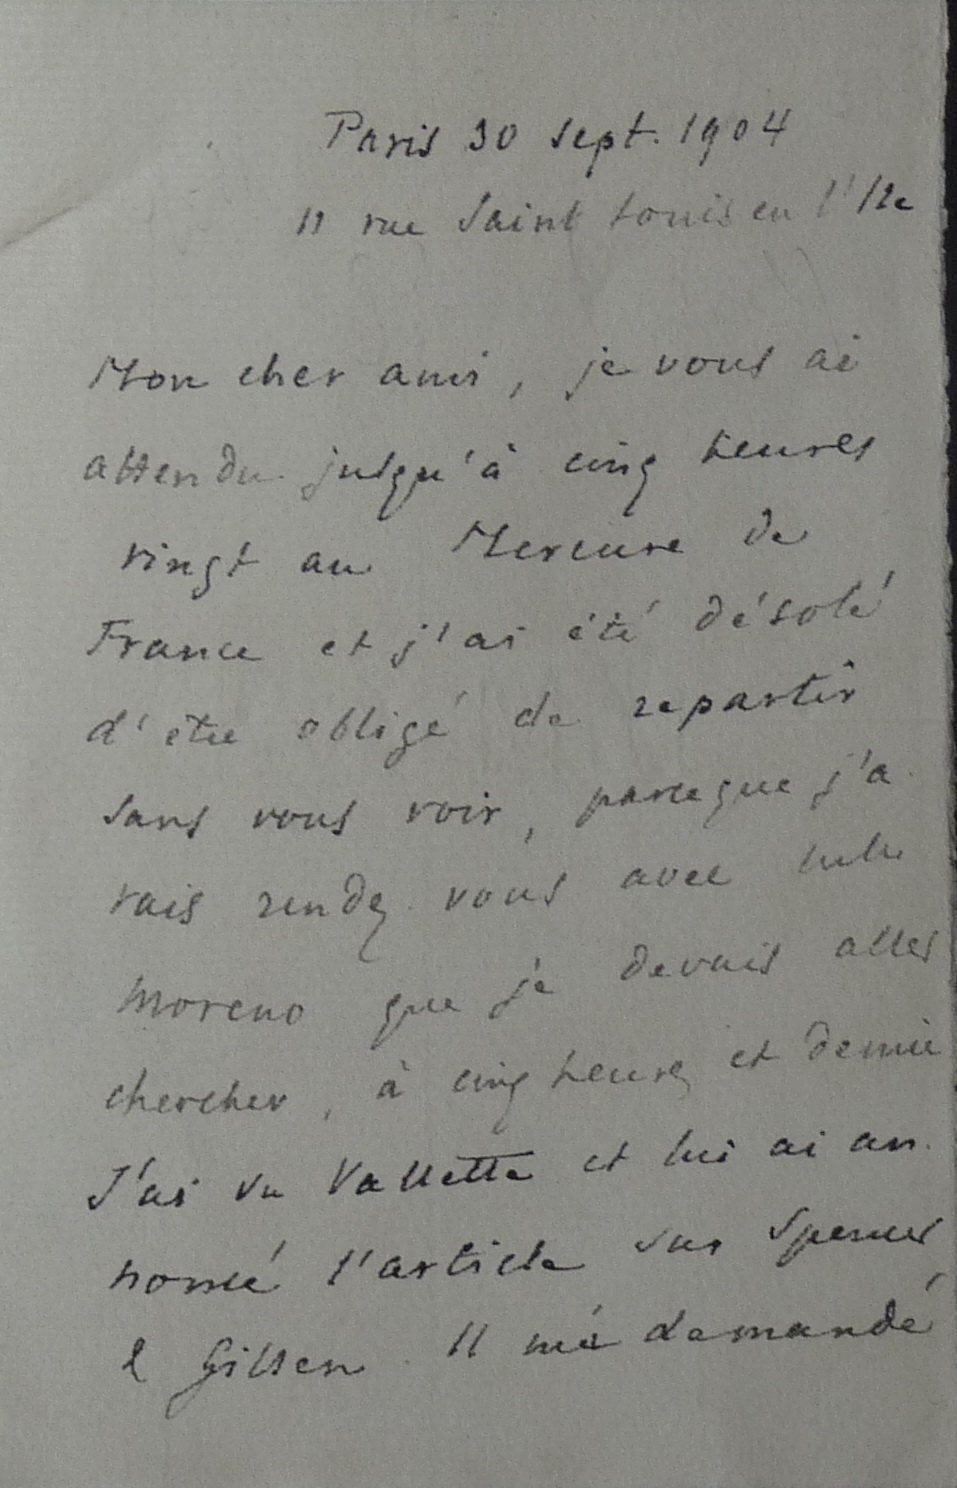 Paris 30 sept. 1904
11 rue Saint Louis en l'Ile
Mon cher ami, je vous ai
attendu jusqu'à cinq heures
vingt au Mercure de
France et j'ai été désolé
d'être obligé de repartir
sans vous voir, parce que j'a
vais rendez-vous avec
Moreno que je devais aller
chercher, à cinq heures et demie
J'ai vu Vallette et lui ai an-
noncé l'article sur Spencer
& Gillen. Il m'a demandé